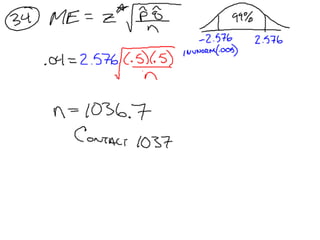 34 ME = z* √(p̂q̂/n)
99%
-2.576 2.576
INVNORM(.005)
.04 = 2.576 √((.5)(.5)/n)
n = 1036.7
CONTACT 1037